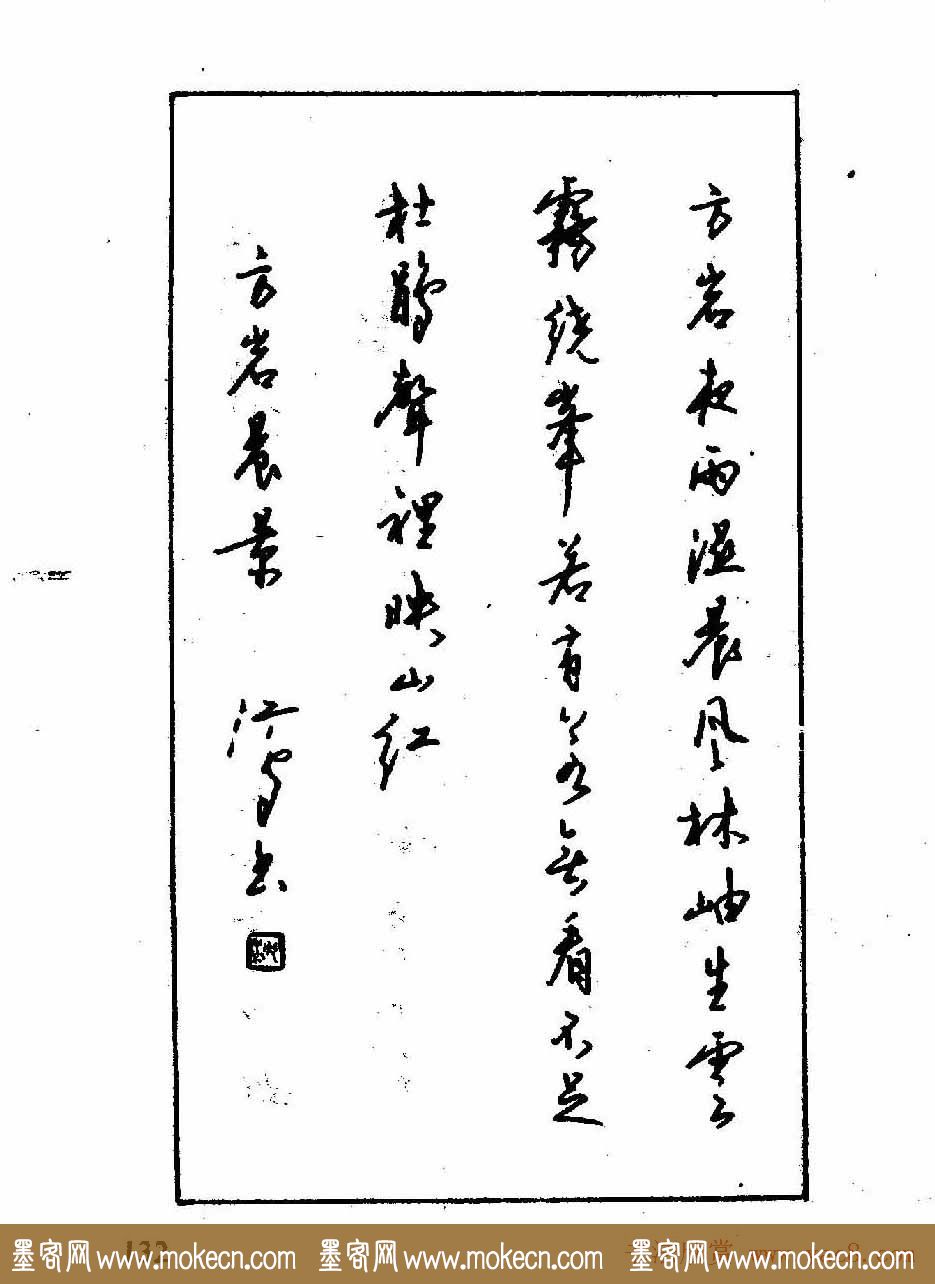 方岩夜雨湿晨风林岫生雲
霧绕峯若有若無看不足
杜鹃聲裡映山红
方岩晨景 江
墨客网www.mokecn.com 墨客网www.mokecn.com 墨客网www.mokecn.com
132